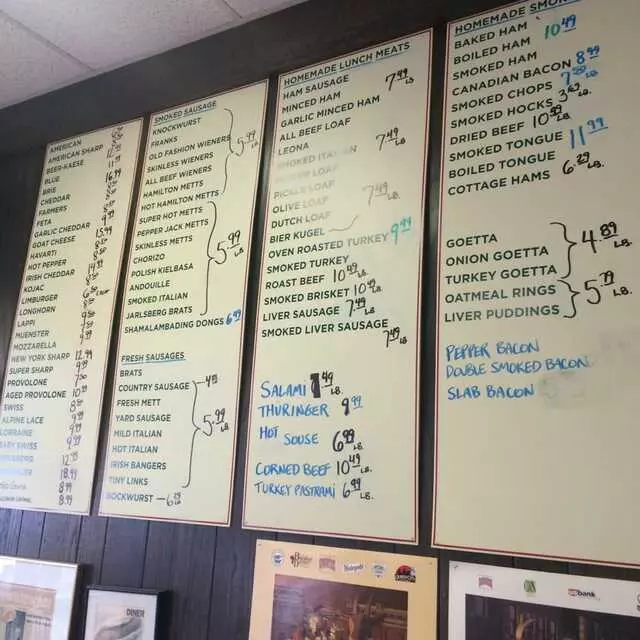 AMERICAN
AMERICAN SHARP
BEER-KAESE
BLUE 16.99
BRIE
CHEDDAR
FARMERS
FETA
GARLIC CHEDDAR
GOAT CHEESE 15.99
HAVARTI
HOT PEPPER
IRISH CHEDDAR 14.99
KOJAC
LIMBURGER
LONGHORN
LAPPI
MUENSTER
MOZZARELLA
NEW YORK SHARP 12.99
SUPER SHARP 9.99
PROVOLONE
AGED PROVOLONE 10.99
SWISS
ALPINE LACE 9.99
LORRAINE 9.99
BABY SWISS 9.99
12.99
18.99
8.99
8.99
SMOKED SAUSAGE
KNOCKWURST
FRANKS
OLD FASHION WIENERS
SKINLESS WIENERS
ALL BEEF WIENERS
HAMILTON METTS
HOT HAMILTON METTS
5.99 LB
SUPER HOT METTS
PEPPER JACK METTS
SKINLESS METTS
CHORIZO
POLISH KIELBASA
ANDOUILLE
SMOKED ITALIAN
JARLSBERG BRATS
5.99 LB
SHAMALAMBADING DONGS 6.99
FRESH SAUSAGES
BRATS
COUNTRY SAUSAGE
FRESH METT
YARD SAUSAGE
MILD ITALIAN
HOT ITALIAN
IRISH BANGERS
TINY LINKS
5.99 LB
BOCKWURST
HOMEMADE LUNCH MEATS
HAM SAUSAGE
MINCED HAM 7.49 LB.
GARLIC MINCED HAM
ALL BEEF LOAF
LEONA 7.49 LB.
SMOKED ITALIAN
PICKLE LOAF
OLIVE LOAF 7.49 LB.
DUTCH LOAF
BIER KUGEL
OVEN ROASTED TURKEY 9.99
SMOKED TURKEY
ROAST BEEF 10.49 LB.
SMOKED BRISKET 10.49 LB.
LIVER SAUSAGE 7.49 LB.
SMOKED LIVER SAUSAGE 7.49 LB.
SALAMI 7.49 LB.
THURINGER 9.99
HOT SOUSE 6.99 LB.
CORNED BEEF 10.49 LB.
TURKEY PASTRAMI 6.99 LB.
HOMEMADE
BAKED HAM 10.49
BOILED HAM
SMOKED HAM
CANADIAN BACON 8.99
SMOKED CHOPS
SMOKED HOCKS LB.
DRIED BEEF 10.99 LB.
SMOKED TONGUE 11.99
BOILED TONGUE
COTTAGE HAMS 6.29 LB.
GOETTA
ONION GOETTA
TURKEY GOETTA
4.89 LB
OATMEAL RINGS
LIVER PUDDINGS
5.79 LB
PEPPER BACON
DOUBLE SMOKED BACON
SLAB BACON
DINER
usbank